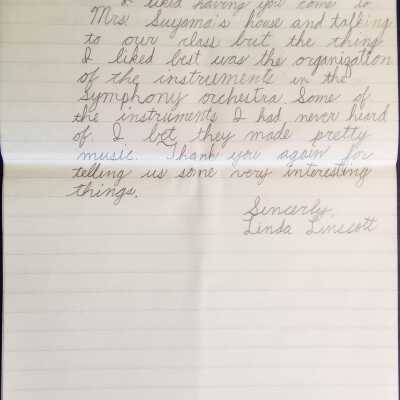 I liked having you come to
Mrs. Suyama's house and talking
to our class but the thing
I liked best was the organization
of the instruments in the
Symphony orchestra. Some of
the instruments I had never heard
of. I bet they made pretty
music. Thank you again for
telling us some very interesting
things.
Sincerly,
Linda Linscott